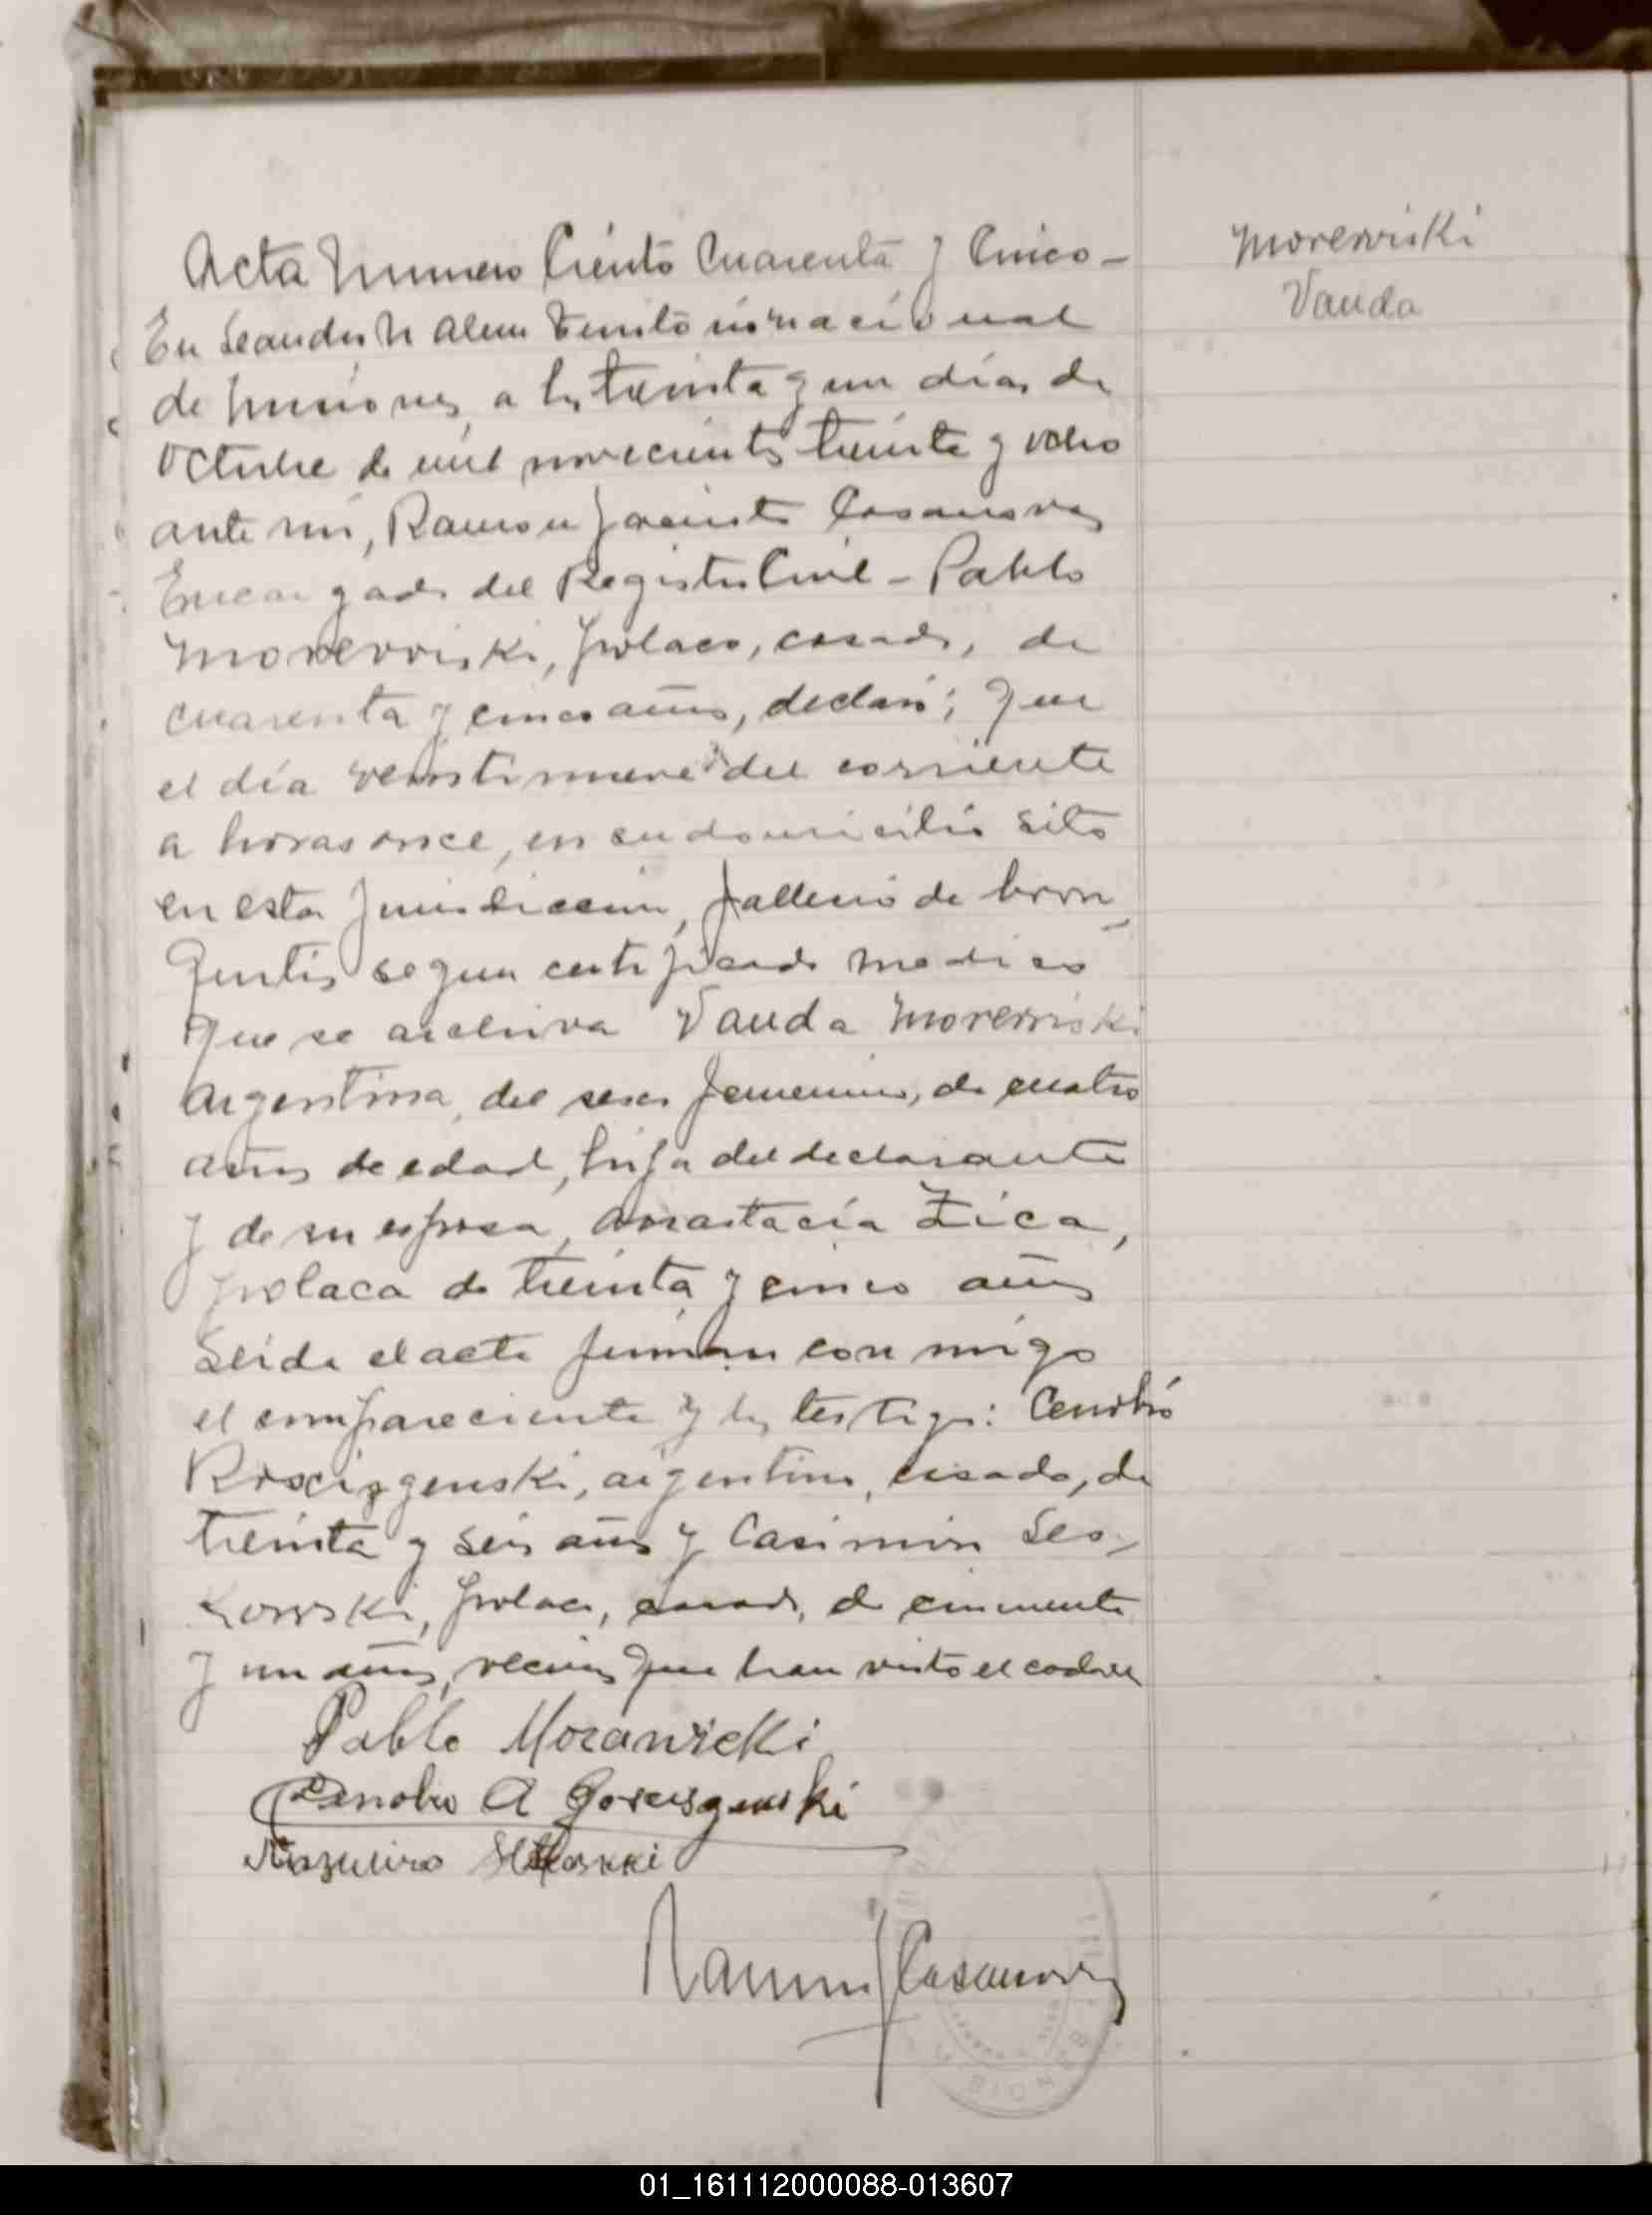 Acta Numero Ciento Cuarenta y Cinco -
Morerviski
Vanda
En Leandro N Alem Territorio nacional
de Misiones, a los treinta y un días de
Octubre de mil novecientos treinta y ocho
ante mi, Ramon Jacinto Casanovas
Encargado del Registro Civil - Pablo
Morerviski, polaco, casado, de
cuarenta y cinco años, declaró; Que
el día veintinueve del corriente
a horas once, en su domicilio sito
en esta Jurisdiccion, fallecio de bron
quitis segun certificado medico
que se archiva Vanda Morerviski
Argentina, del sexo femenino, de cuatro
años de edad, hija del declarante
y de su esposa, Anastacia Zica,
polaca de treinta y cinco años
Leida el acta firman con migo
el compareciente y los testigos: Cenobio
Roscizgenski, argentino, casado, de
treinta y seis años y Casimiro Les-
kowski, polaco, casado, de cincuenta
y un años, vecinos que han visto el cadaver
Pablo Morawicki
Cenobio A Goscisgenski
Kazmiro
Ramon J Casanovas
MISIONES
01_161112000088-013607